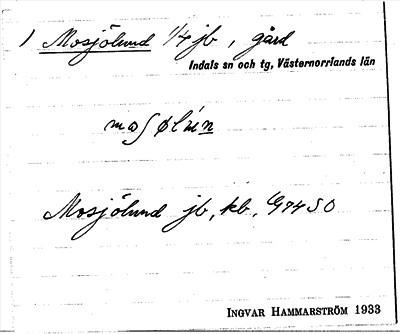 1 Mosjölund 1/4 jb, gård
Indals sn och tg, Västernorrlands län
Mosjölund jb, kb, G74 SO
INGVAR HAMMARSTRÖM 1933